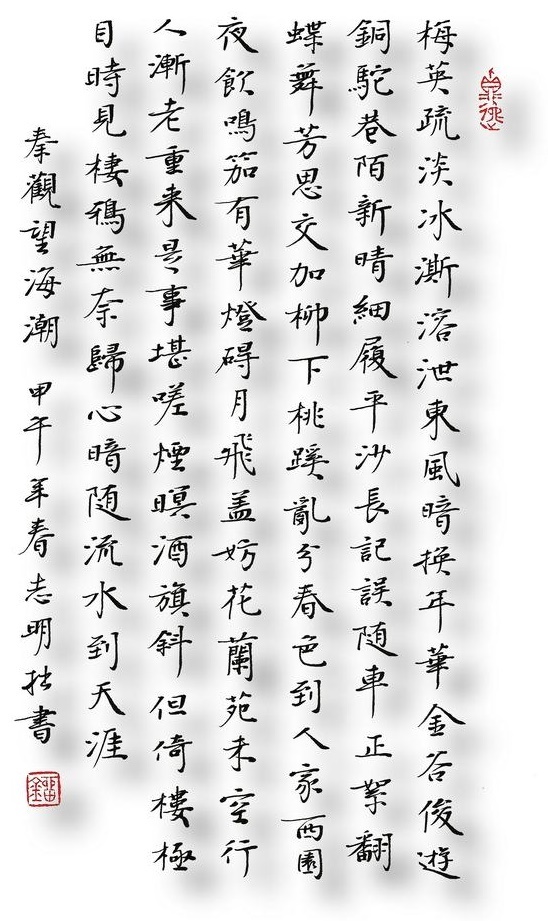 梅英疏淡冰澌溶泄東風暗換年華金谷俊遊
銅駝巷陌新晴細履平沙長記誤随車正絮翻
蝶舞芳思交加柳下桃蹊亂分春色到人家西園
夜飲鳴笳有華燈碍月飛蓋妨花蘭苑未空行
人漸老重来是事堪嗟煙暝酒旗斜但倚樓極
目時見棲鴉無奈歸心暗随流水到天涯
秦觀望海潮 甲午年春志明拙書